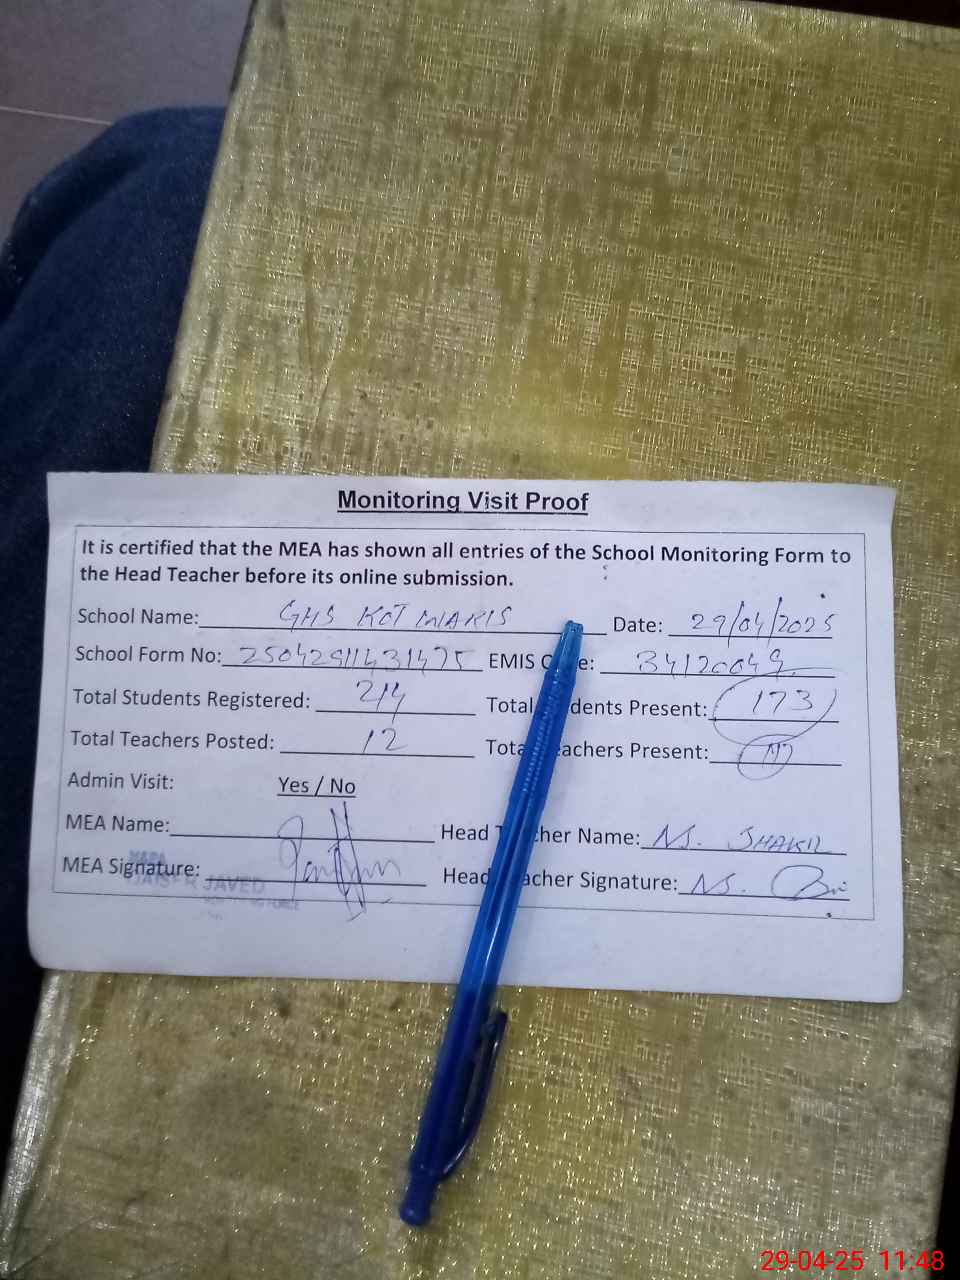 Monitoring Visit Proof
It is certified that the MEA has shown all entries of the School Monitoring Form to
the Head Teacher before its online submission.
School Name: GHS KOT WARIS Date: 29/04/2025
School Form No: 25042911431475 EMIS C e: 34120049
Total Students Registered: 214 Total dents Present: 173
Total Teachers Posted: 12 Tota achers Present:
Admin Visit: Yes / No
MEA Name: Head T cher Name: M. SHAKIL
MEA Signature: Head acher Signature: M.
JAVED
29-04-25 11:48